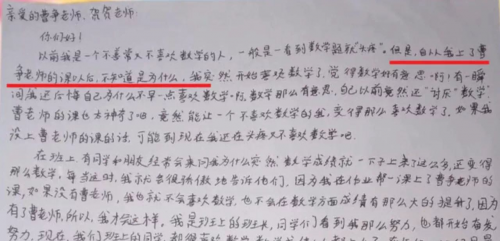 亲爱的曹争老师、贺贺老师:
你们好!
以前我是一个不喜爱又不喜欢数学的人,一般是一看到数学题就"头疼"。但是,自从我上了曹
争老师的课以后,不知道是为什么,我突然开始喜欢数学了,觉得数学好有意思呀!有一瞬
间我还后悔自己为什么不早一点喜欢数学呀,数学那么有意思,自己以前竟然还"讨厌"数学,
曹老师的课也太神奇了吧,竟然能让一个不喜欢数学的我,变得那么喜欢数学了,如果我
没上曹老师的课的话,可能到现在我还在头疼又不喜欢数学吧。
在班上有同学和朋友经常会来问我为什么突然数学成绩就一下子上来了这么多,还变得
那么数学,每当这时,我就会很骄傲地告诉他们,因为我在作业帮一课上了曹争老师的
课,如果没有曹老师,我也就不会喜欢数学,也不会在数学方面成绩有那么大的提升了,因为
有了曹老师,所以,我才会这样。我是班上的班长,同学们看到我那么努力,也都开始奋发
努力,现在,我们班上的同学